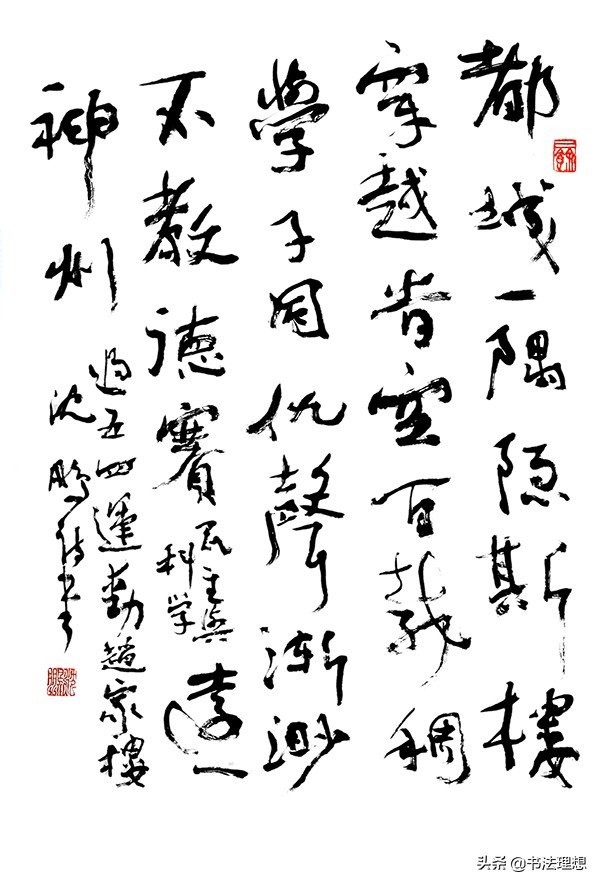 都城一隅隐斯樓
穿越旹空百載稠
學子同仇聲漸渺
不教德賽
民主與
科学
遠
神州
過五四運動趙家樓
沈鵬詩書
头条 @书法理想